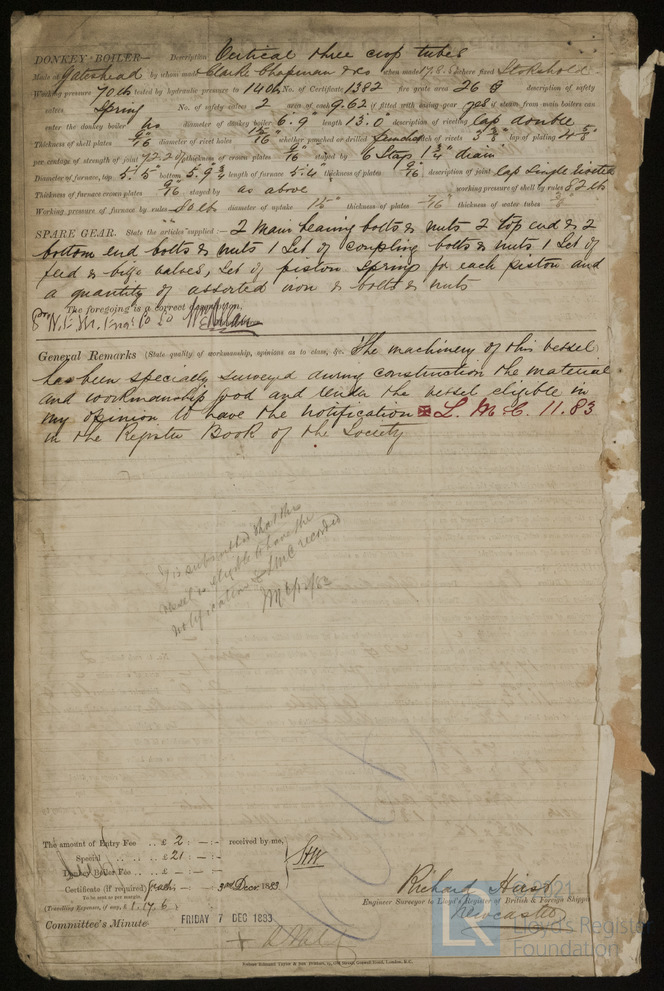 DONKEY BOILER— Description Vertical three cross tubes
Made at Gateshead by whom made Clarke Chapman & Co when made 17.8. where fixed Stokehold
Working pressure 70 lb tested by hydraulic pressure to 140 lb No. of Certificate 1382 fire grate area 26 description of safety
valves Spring No. of safety valves 2 area of each 9.62 if fitted with easing gear yes if steam from main boilers can
enter the donkey boiler No diameter of donkey boiler 6. 9" length 13. 0" description of riveting lap double
Thickness of shell plates 9/16 diameter of rivet holes 15/16" whether punched or drilled punched pitch of rivets 3 lap of plating 4 5/8
per centage of strength of joint 72.2 % thickness of crown plates 9/16 stayed by 6 Stays 1 3/4" diam
Diameter of furnace, top 5. 5 bottom 5. 9 3/4 length of furnace 5. 4 thickness of plates 9/16 description of joint lap Single riveted
Thickness of furnace crown plates 9/16 stayed by as above working pressure of shell by rules 82 lb
Working pressure of furnace by rules 80 lb diameter of uptake thickness of plates thickness of water tubes 3/8
SPARE GEAR. State the articles supplied:— 2 Main bearing bolts & nuts 2 top end & 2
bottom end bolts & nuts 1 Set of coupling bolts & nuts 1 Set of
feed & bilge valves, Set of piston Spring for each piston and
a quantity of assorted iron & bolts & nuts
The foregoing is a correct description,
General Remarks (State quality of workmanship, opinions as to class, &c. The machinery of this vessel
has been specially surveyed during construction the material
and workmanship good and render the vessel eligible in
my opinion to have the notification ✠ L. M. C. 11.83
in the Register Book of the Society
It is submitted that the
vessel is eligible to have the
notification LMC recorded
The amount of Entry Fee .. £ 2 : — : — received by me,
Special .. .. £ 21 : — : —
Donkey Boiler Fee .. £ — : — : —
Certificate (if required) 3rd Decr 1883
To be sent as per margin.
(Travelling Expenses, if any, £ 1.17.6.)
Richard Hirst
Engineer Surveyor to Lloyd's Register of British & Foreign Shipping
Newcastle
Committee's Minute FRIDAY 7 DEC 1883
LR
2021
Lloyd's Register
Foundation